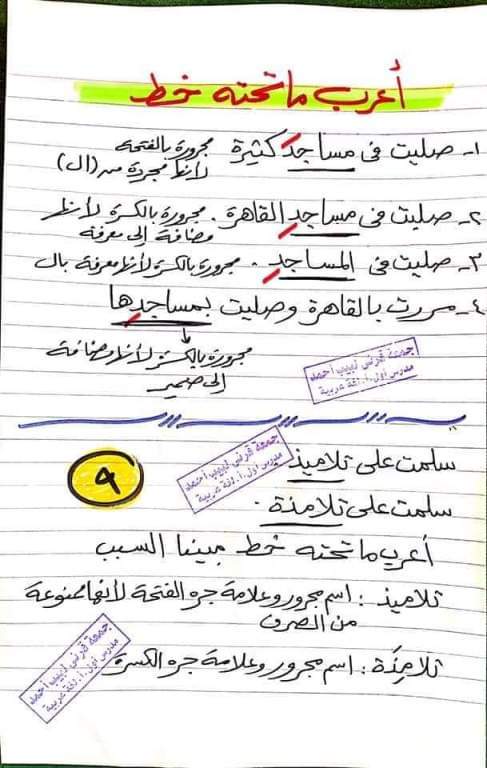 أعرب ما تحته خط
١- صليت في مساجدَ كثيرة مجرورة بالفتحة
لأنها مجردة من (ال)
٢- صليت في مساجدِ القاهرة . مجرورة بالكسرة لأنها
مضافة إلى معرفة
٣- صليت في المساجدِ . مجرورة بالكسرة لأنها معرفة بال
٤- مررت بالقاهرة وصليت بمساجدِها
مجرورة بالكسرة لأنها مضافة
الى ضمير
جمعة قرني لبيب أحمد
مدرس أول أ. لغة عربية
سلمت على تلاميذ
جمعة قرني لبيب أحمد
مدرس أول أ. لغة عربية
٩
سلمت على تلامذة .
أعرب ما تحته خط مبينا السبب
تلاميذ : اسم مجرور وعلامة جره الفتحة لأنها ممنوعة
من الصرف
تلامذة : اسم مجرور وعلامة جره الكسرة
جمعة قرني لبيب أحمد
مدرس أول أ. لغة عربية